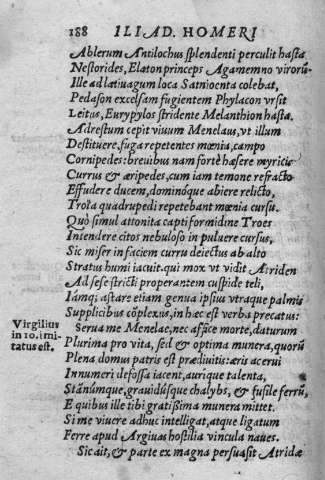 188 ILIAD. HOMERI
Ablerum Antilochus splendenti perculit hasta
Nestorides, Elaton princeps Agamemno virorũ.
Ille ad latiuagum loca Satnioenta colebat,
Pedason excelsam fugientem Phylacon vrsit
Leitus, Eurypylos stridente Melanthion hasta.
Adrestum cepit viuum Menelaus, vt illum
Destituere, fuga repetentes mœnia, campo
Cornipedes: breuibus nam fortè hæsere myricis
Currus & æripedes, cum iam temone refracto
Effudere ducem, dominóque abiere relicto,
Troia quadrupedi repetebant mœnia cursu.
Quò simul attonita capti formidine Troes
Intendere citos nebuloso in puluere cursus,
Sic miser in faciem curru deiectus ab alto
Stratus humi iacuit. qui mox vt vidit Atriden
Ad sese stricti properantem cuspide teli,
Iámq; astare etiam genua ipsius vtraque palmis
Supplicibus cõplexus, in hæc est verba precatus:
Virgilius
in 10. imi-
tatus est.
Serua me Menelae, nec affice morte, daturum
Plurima pro vita, sed & optima munera, quorũ
Plena domus patris est prædiuitis: æris acerui
Innumeri defossa iacent, aurique talenta,
Stánúmque, grauidúsque chalybs, & fusile ferrũ,
E quibus ille tibi gratissima munera mittet.
Si me viuere adhuc intelligat, atque ligatum
Ferre apud Argiuas hostilia vincula naues.
Sic ait, & parte ex magna persuasit Atridæ